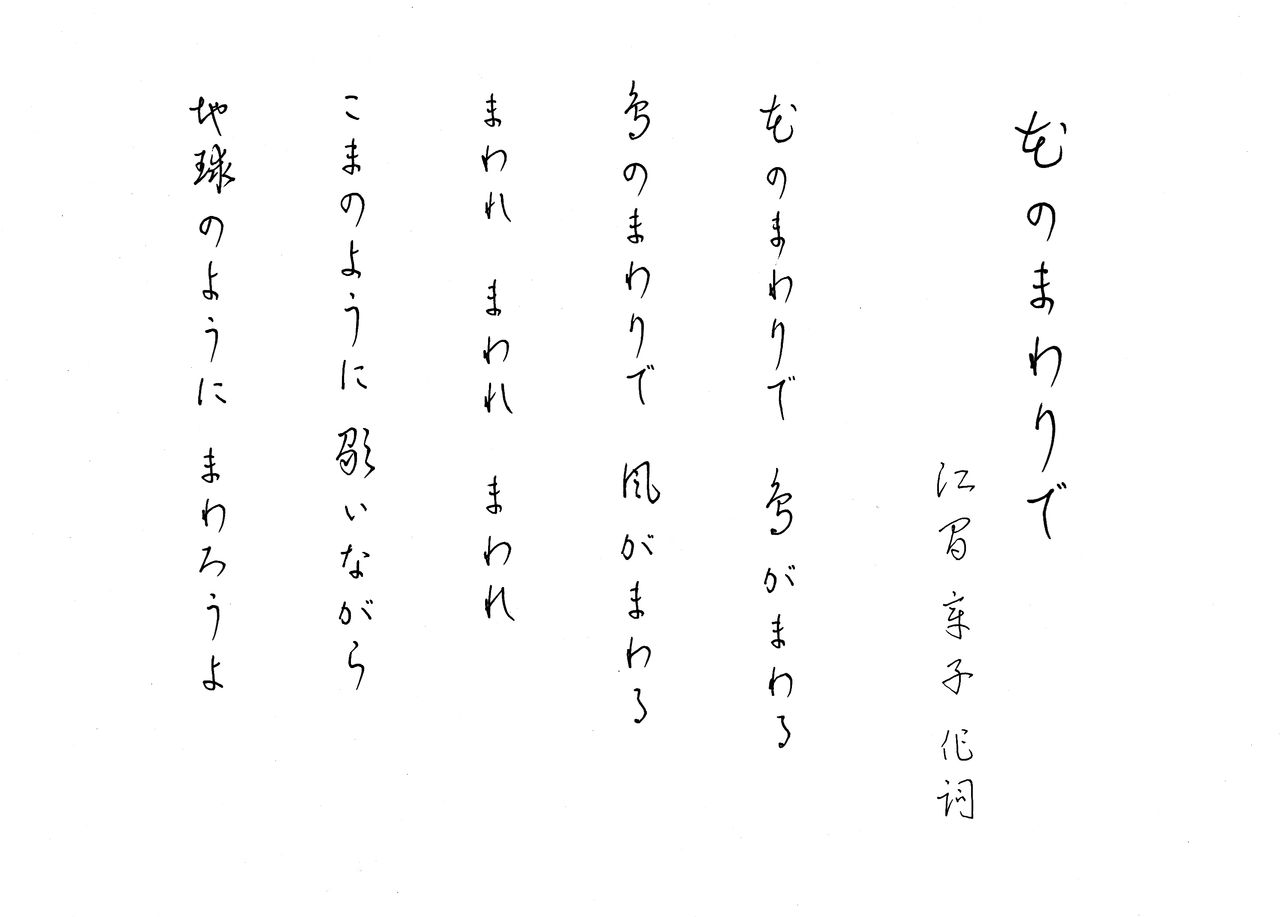 花のまわりで
江間章子 作詞
花のまわりで 鳥がまわる
鳥のまわりで 風がまわる
まわれ まわれ まわれ
こまのように 歌いながら
地球のように まわろうよ